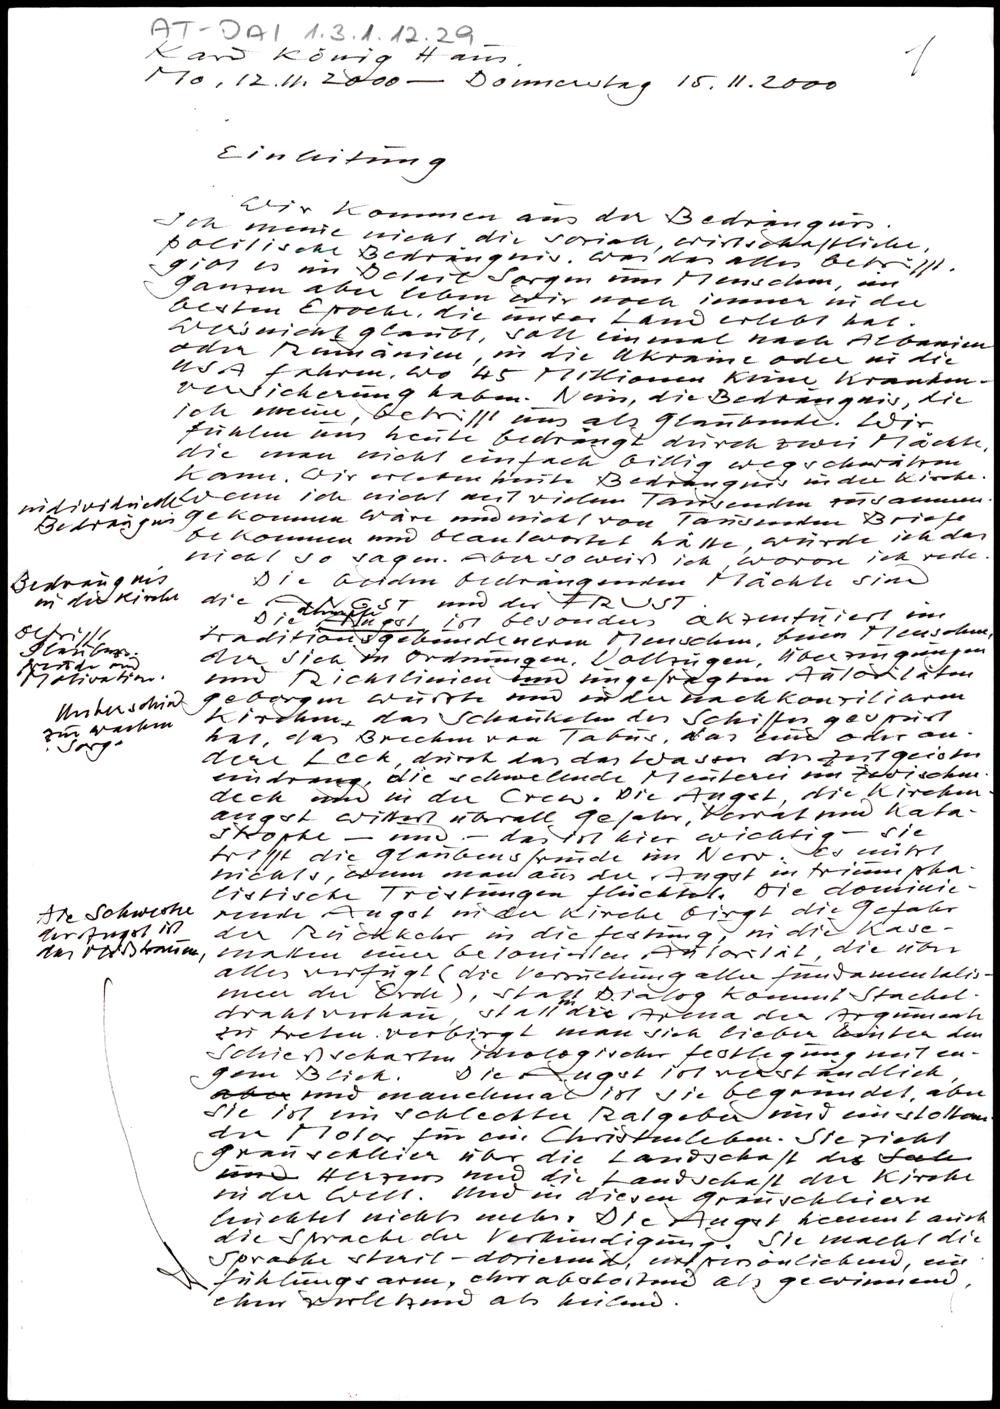 AT-DAI 1.3.1.12.29
1
Kard König Haus.
Mo, 12.11.2000 — Donnerstag 15.11.2000
Einleitung
Wir kommen aus der Bedrängnis.
Ich meine nicht die soziale, wirtschaftliche,
politische Bedrängnis. Was das alles betrifft,
gibt es im Detail Sorgen um Menschen, im
ganzen aber leben wir noch immer in der
besten Epoche, die unser Land erlebt hat.
Wer's nicht glaubt, soll einmal nach Albanien
oder Rumänien, in die Ukraine oder in die
USA fahren, wo 45 Millionen keine Kranken-
versicherung haben. Nein, die Bedrängnis, die
ich meine, betrifft uns als Glaubende. Wir
fühlen uns heute bedrängt durch zwei Mächte,
die man nicht einfach billig wegschwätzen
kann. Wir erleben heute Bedrängnis in der Kirche.
individuelle
Bedrängnis
Wenn ich nicht mit vielen Tausenden zusammen-
gekommen wäre und nicht von Tausenden Briefe
bekommen und beantwortet hätte, würde ich das
nicht so sagen. Aber so weiß ich, wovon ich rede.
Bedrängnis
in der Kirche
Die beiden bedrängenden Mächte sind
die ANGST und der FRUST.
betrifft
Glaubens-
freude und
Motivation.
Die Angst ist besonders akzentuiert im
traditionsgebundeneren Menschen, beim Menschen,
der sich in Ordnungen, Vollzügen, Überzeugungen
und Richtlinien und ungefragten Autoritäten
Unterschied
zur wachen
Sorge
geborgen wusste und in der nachkonziliaren
Kirche, das Schaukeln des Schiffes gespürt
hat, das Brechen von Tabus, das eine oder an-
dere Leck, durch das das Wasser des Zeitgeistes
eindrang, die schwelende Meuterei im Zwischen-
deck und in der Crew. Die Angst, die Kirchen-
angst wittert überall Gefahr, Verrat und Kata-
strophe — und — das ist hier wichtig — sie
trifft die Glaubensfreude im Nerv. Es nützt
nichts, wenn man aus der Angst in triumpha-
listische Tröstungen flüchtet. Die dominie-
rende Angst in der Kirche birgt die Gefahr
Die Schwester
der Angst ist
das Misstrauen,
der Rückkehr in die Festung, in die Kase-
matten einer betonierten Autorität, die über
alles verfügt (die Versuchung aller Fundamentalis-
men der Erde), statt Dialog kommt Stachel-
drahtverhau, statt in die Arena der Argumente
zu treten verbirgt man sich lieber hinter den
Schießscharten ideologischer Festlegung mit en-
gem Blick. Die Angst ist verständlich,
aber und manchmal ist sie begründet, aber
sie ist ein schlechter Ratgeber und ein stottern-
der Motor für ein Christenleben. Sie zieht
Grauschleier über die Landschaft des
und Herzens und die Landschaft der Kirche
in der Welt. Und in diesen Grauschleiern
leuchtet nichts mehr. Die Angst hemmt auch
die Sprache der Verkündigung. Sie macht die
Sprache steril-dozierend, unpersönlichend,
fühlungsarm, eher abstoßend als gewinnend,
eher verletzend als heilend.